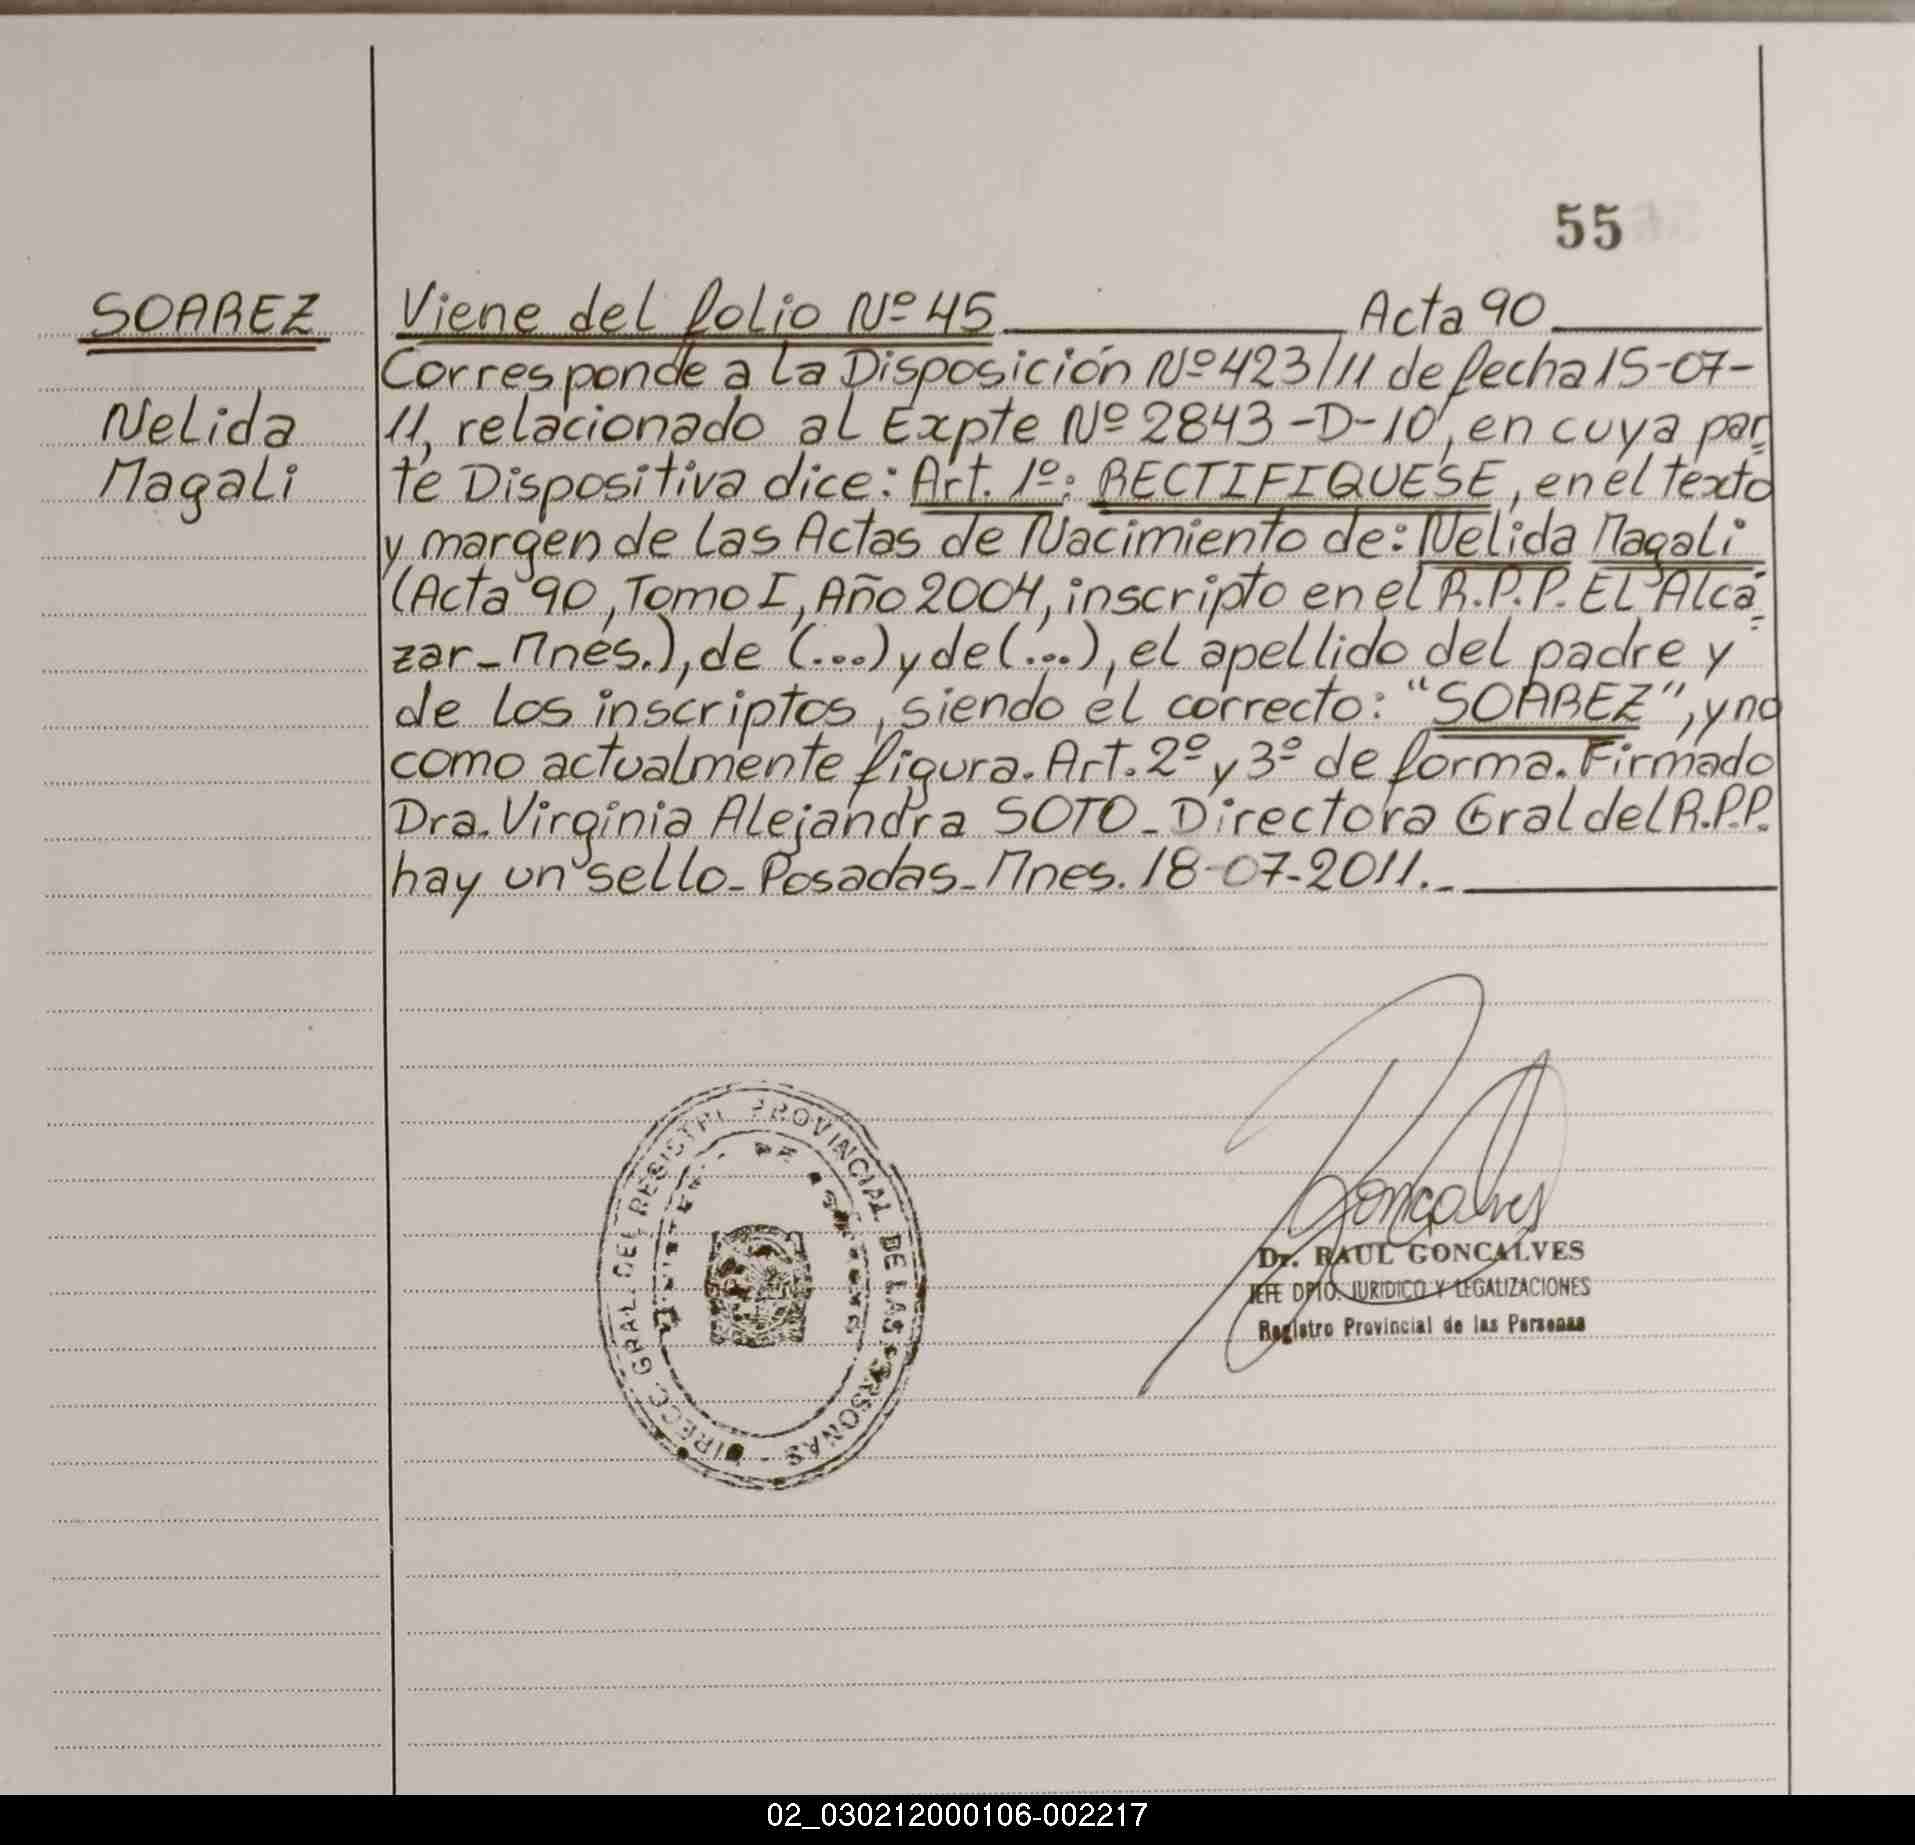 55
SOAREZ
Nelida
Magali
Viene del folio Nº 45 Acta 90
Corresponde a la Disposición Nº 423/11 de fecha 15-07-
11, relacionado al Expte Nº 2843-D-10, en cuya par
te Dispositiva dice: Art. 1º: RECTIFIQUESE, en el texto
y margen de las Actas de Nacimiento de: Nelida Magali
(Acta 90, Tomo I, Año 2004, inscripto en el R.P.P. El Alcá=
zar_Mnes.), de (...) y de (...), el apellido del padre y
de los inscriptos, siendo el correcto: "SOAREZ", y no
como actualmente figura. Art. 2º y 3º de forma. Firmado
Dra. Virginia Alejandra SOTO_Directora Gral del R.P.P.
hay un sello_Posadas_Mnes. 18-07-2011._
DIRECC. GRAL. DEL REGISTRO PROVINCIAL DE LAS PERSONAS
Goncalves
Dr. RAUL GONCALVES
JEFE DPTO. JURIDICO Y LEGALIZACIONES
Registro Provincial de las Personas
02_030212000106-002217